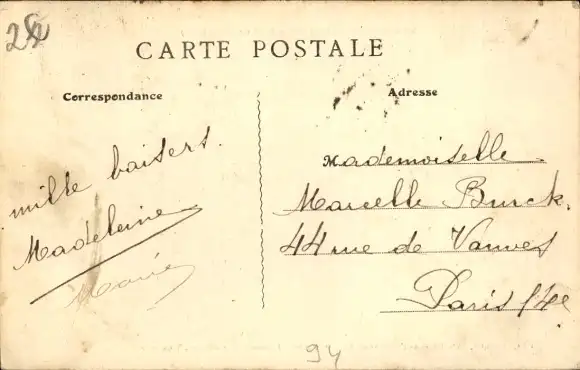 CARTE POSTALE
Correspondance
Adresse
mille baisers.
Madeleine
Marie
Mademoiselle
Marcelle Burck.
44 rue de Vanves
Paris 14e
94